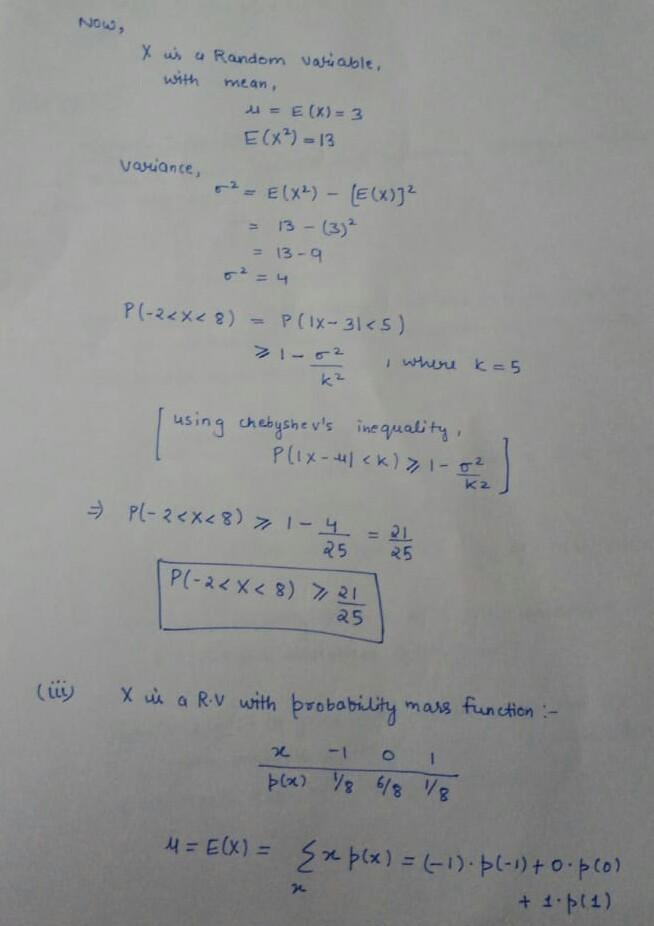 Now,
X is a Random variable,
with mean,
μ = E(X) = 3
E(X²) = 13
Variance,
σ² = E(X²) - [E(X)]²
= 13 - (3)²
= 13 - 9
σ² = 4
P(-2<X<8) = P(|X-3|<5)
⩾ 1 - σ²/k² , where k = 5
[using chebyshev's inequality,
P(|X-μ|<k) ⩾ 1 - σ²/k²]
⇒ P(-2<X<8) ⩾ 1 - 4/25 = 21/25
P(-2<X<8) ⩾ 21/25
(iii) X is a R.V with probability mass function :-
x -1 0 1
p(x) 1/8 6/8 1/8
μ = E(X) = Σx x p(x) = (-1)·p(-1) + 0·p(0)
+ 1·p(1)